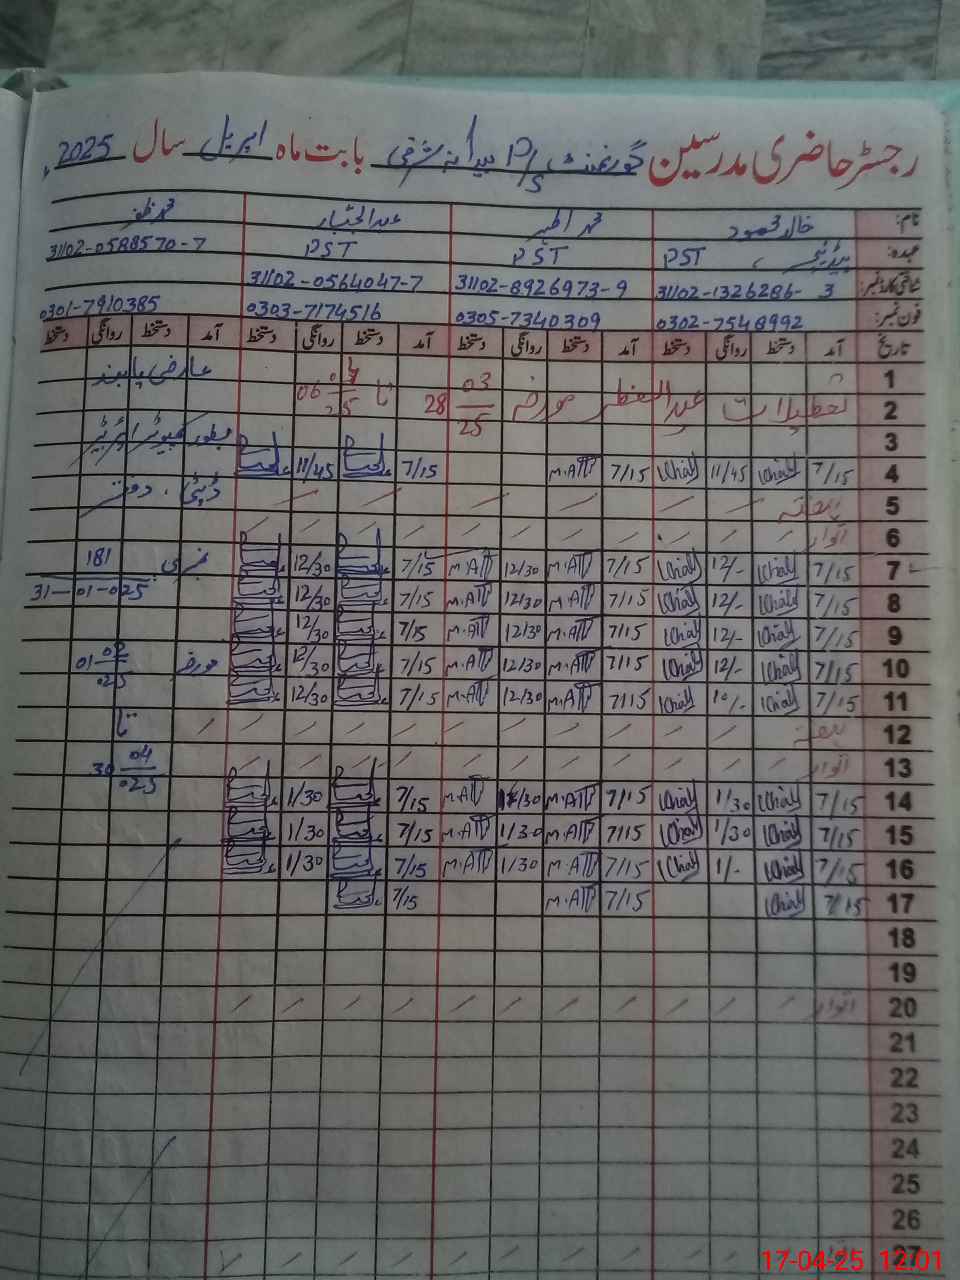 رجسٹر حاضری مدرسین گورنمنٹ P/S میانہ شرفی بابت ماہ اپریل سال 2025ء
نام: خالد محمود محمد اطہر عبدالجبار محمد ظفر
عہدہ: PST PST PST 31102-0588570-7
شناختی کارڈ نمبر: 31102-1326286-3 31102-8926973-9 31102-0564047-7
فون نمبر: 0302-7548992 0305-7340309 0303-7174516 0301-7910385
تاریخ آمد دستخط روانگی دستخط آمد دستخط روانگی دستخط آمد دستخط روانگی دستخط آمد دستخط روانگی دستخط
1 عارضی
2 تعطیلات عیدالفطر مورخہ 28 03 25 تا 06 04 25
3 بطور کمپیوٹر
4 7/15 Khalid 11/45 Khalid 7/15 M.ATT 7/15 11/45
5 ہفتہ
6 اتوار
7 7/15 Khalid 12/- Khalid 7/15 M.ATT 12/30 M.ATT 7/15 12/30 نمبری 181
8 7/15 Khalid 12/- Khalid 7/15 M.ATT 12/30 M.ATT 7/15 12/30 31-01-025
9 7/15 Khalid 12/- Khalid 7/15 M.ATT 12/30 M.ATT 7/15 12/30
10 7/15 Khalid 12/- Khalid 7/15 M.ATT 12/30 M.ATT 7/15 12/30 مورخہ 01 02 025
11 7/15 Khalid 10/- Khalid 7/15 M.ATT 12/30 M.ATT 7/15 12/30
12 ہفتہ تا
13 اتوار 30 04 025
14 7/15 Khalid 1/30 Khalid 7/15 M.ATT 1/30 M.ATT 7/15 1/30
15 7/15 Khalid 1/30 Khalid 7/15 M.ATT 1/30 M.ATT 7/15 1/30
16 7/15 Khalid 1/- Khalid 7/15 M.ATT 1/30 M.ATT 7/15 1/30
17 7/15 Khalid 7/15 M.ATT 7/15
18
19
20 اتوار
21
22
23
24
25
26
27
17-04-25 12:01